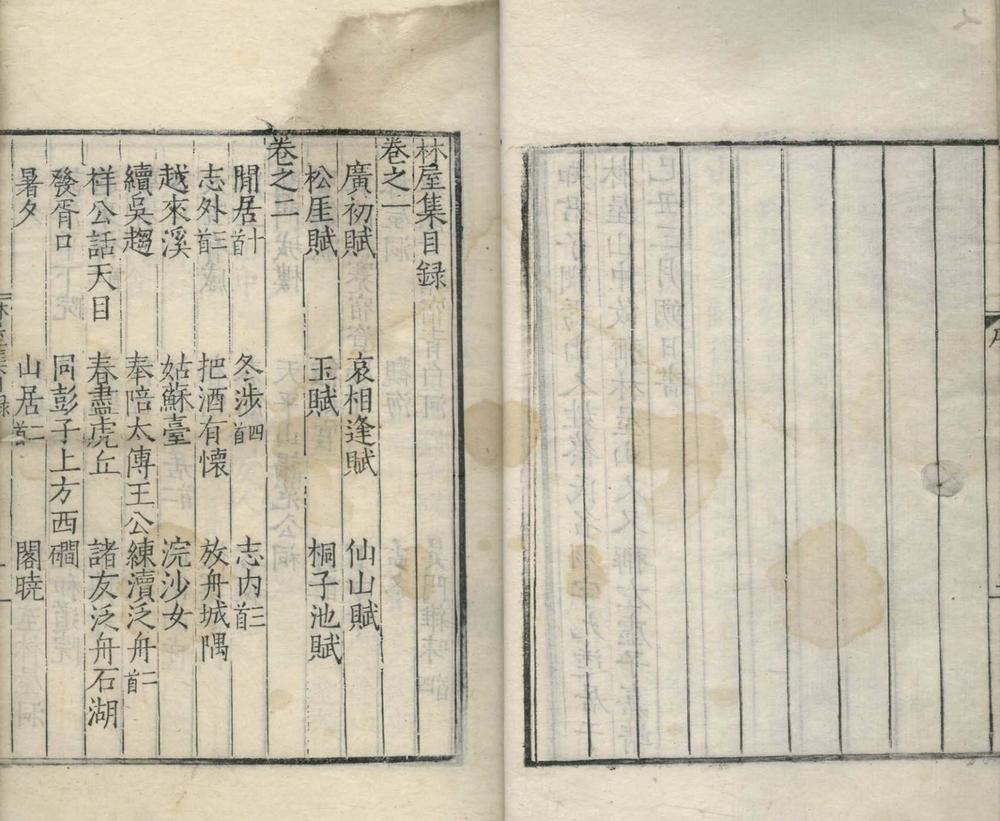 林屋集目録
卷之一
廣初賦 哀相逢賦 仙山賦
松厓賦 玉賦 桐子池賦
卷之二
閒居十首 冬涉四首 志内三首
志外三首 把酒有懷 放舟城隅
越來溪 姑蘇臺 浣沙女
續吳趨 奉陪太傅王公練瀆泛舟二首
祥公話天目 春盡虎丘 諸友泛舟石湖
發胥口 同彭子上方西磵
暑夕 山居二首 閣曉